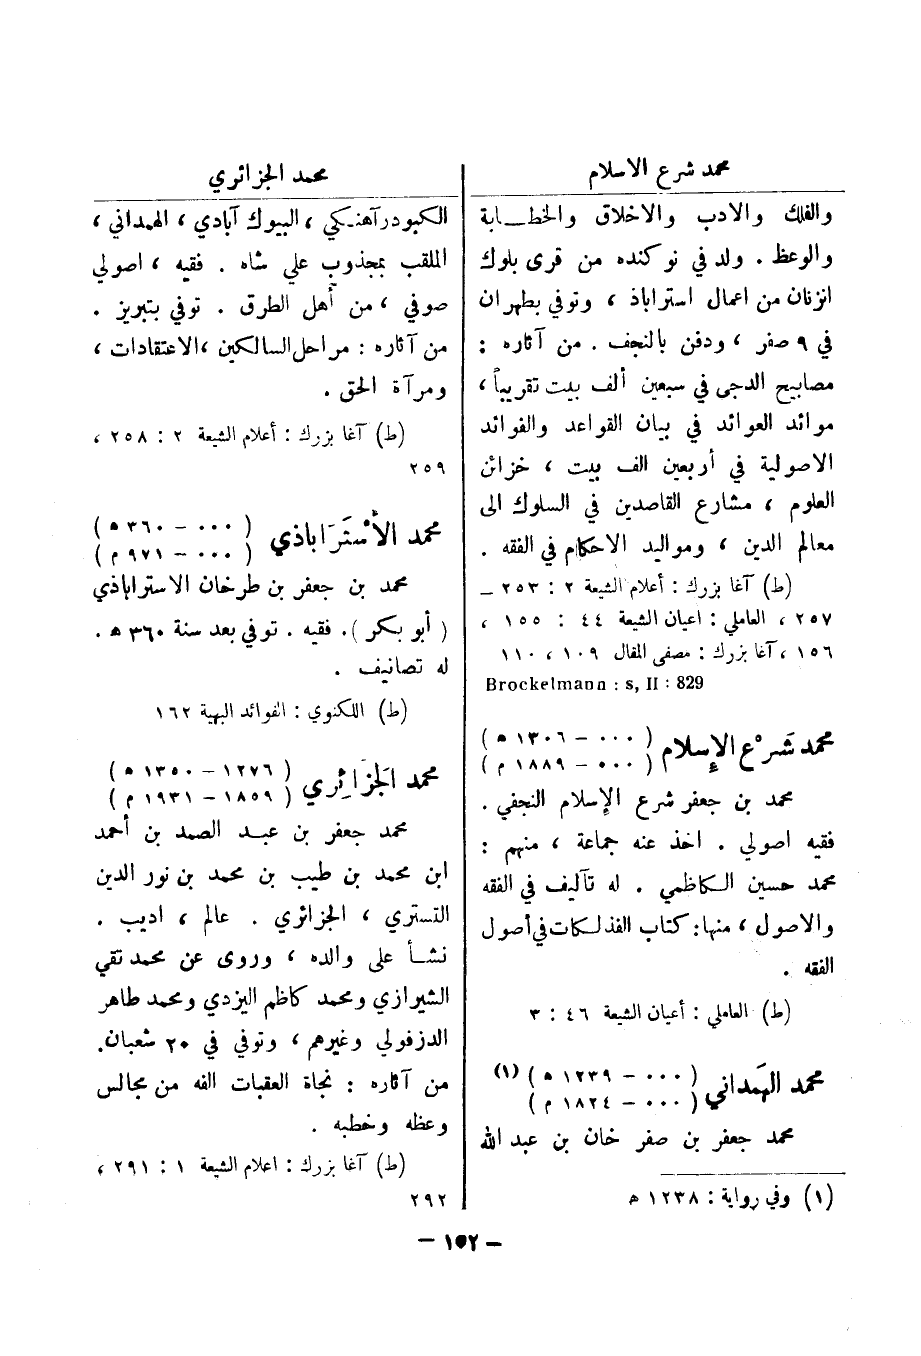 محمد شرع الاسلام
والفلك والادب والاخلاق والخطــابة
والوعظ . ولد في نوكنده من قرى بلوك
انزنان من اعمال استراباذ ، وتوفي بطهران
في ٩ صفر ، ودفن بالنجف . من آثاره :
مصابيح الدجى في سبعين ألف بيت تقريباً ،
موائد العوائد في بيان القواعد والفوائد
الاصولية في أربعين الف بيت ، خزائن
العلوم ، مشارع القاصدين في السلوك الى
معالم الدين ، ومواليد الاحكام في الفقه .
(ط) آغا بزرك : أعلام الشيعة ٢ : ٢٥٣ ـ
٢٥٧ ، العاملي : اعيان الشيعة ٤٤ : ١٥٥ ،
١٥٦ ، آغا بزرك : مصفى المقال ١٠٩ ، ١١٠
Brockelmann : s, II : 829
محمد شَرْع الإِسلام ( ٠٠٠ – ١٣٠٦ ه )
( ٠٠٠ – ١٨٨٩ م )
محمد بن جعفر شرع الإسلام النجفي .
فقيه اصولي . اخذ عنه جماعة ، منهم :
محمد حسين الكاظمي . له تآليف في الفقه
والاصول ، منها: كتاب الفذلكات في أصول
الفقه .
(ط) العاملي : أعيان الشيعة ٤٦ : ٣
محمد الهَمداني ( ٠٠٠ – ١٢٣٩ ه ) (١)
( ٠٠٠ – ١٨٢٤ م )
محمد جعفر بن صفر خان بن عبد الله
(١) وفي رواية : ١٢٣٨ ه
محمد الجزائري
الكبودرآهنكي ، البيوك آبادي ، الهمداني ،
الملقب بمجذوب علي شاه . فقيه ، اصولي
صوفي ، من أهل الطرق . توفي بتبريز .
من آثاره : مراحل السالكين ، الاعتقادات ،
ومرآة الحق .
(ط) آغا بزرك : أعلام الشيعة ٢ : ٢٥٨ ،
٢٥٩
محمد الأَسْتَرَاباذي ( ٠٠٠ – ٣٦٠ ه )
( ٠٠٠ – ٩٧١ م )
محمد بن جعفر بن طرخان الاستراباذي
( أبو بكر ) . فقيه . توفي بعد سنة ٣٦٠ ه .
له تصانيف .
(ط) اللكنوي : الفوائد البهية ١٦٢
محمد الجَزَائِري ( ١٢٧٦ – ١٣٥٠ ه )
( ١٨٥٩ – ١٩٣١ م )
محمد جعفر بن عبد الصمد بن أحمد
ابن محمد بن طيب بن محمد بن نور الدين
التستري ، الجزائري . عالم ، اديب .
نشأ على والده ، وروى عن محمد تقي
الشيرازي ومحمد كاظم اليزدي ومحمد طاهر
الدزفولي وغيرهم ، وتوفي في ٢٠ شعبان.
من آثاره : نجاة العقبات الفه من مجالس
وعظه وخطبه .
(ط) آغا بزرك : اعلام الشيعة ١ : ٢٩١ ،
٢٩٢
– ١٥٢ –